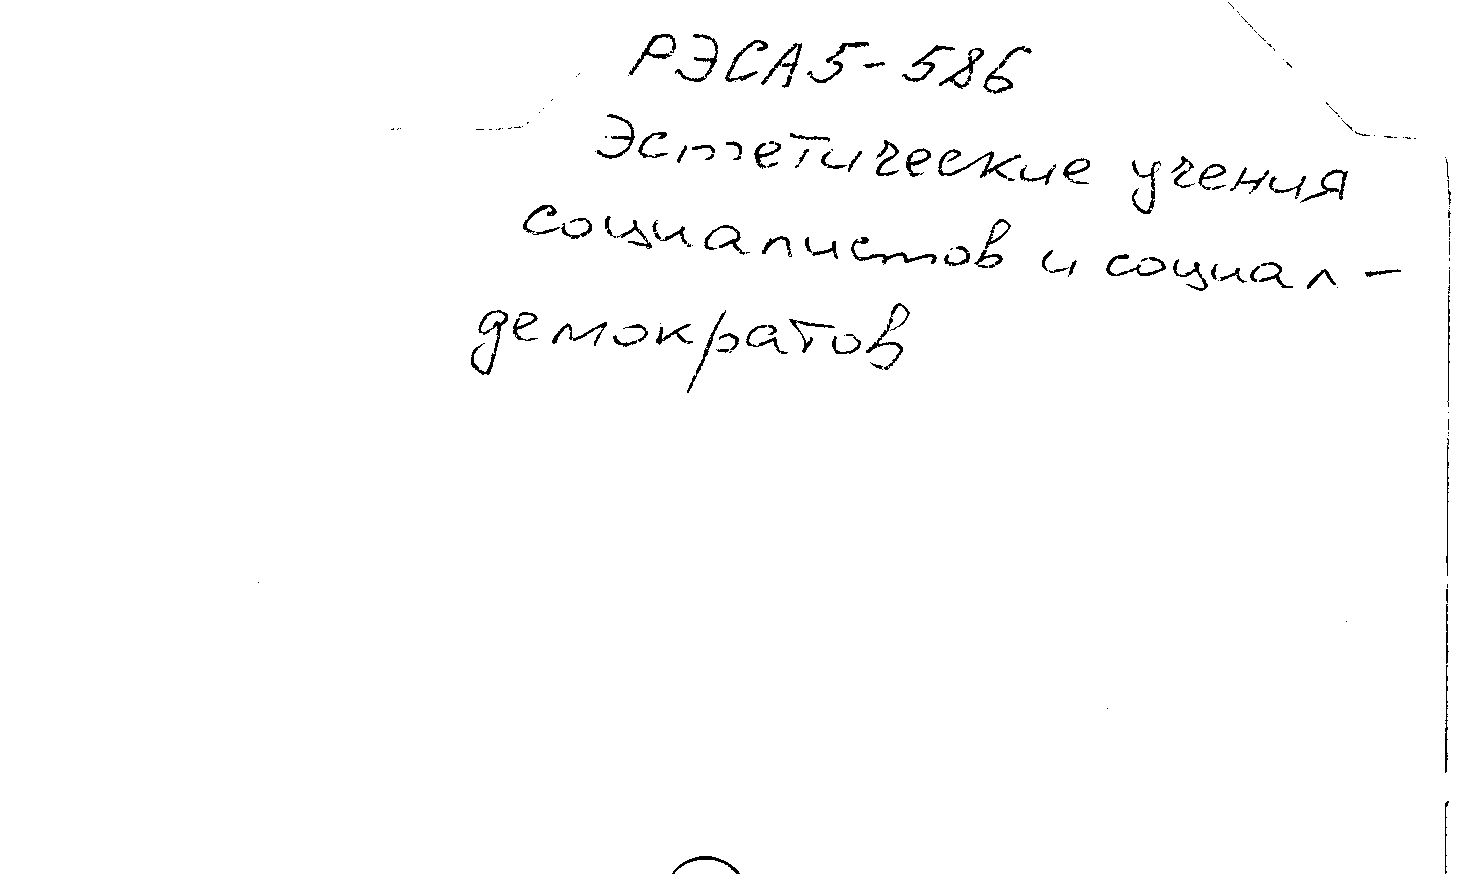 РЭСА5-586
Эстетические учения
социалистов и социал-
демократов